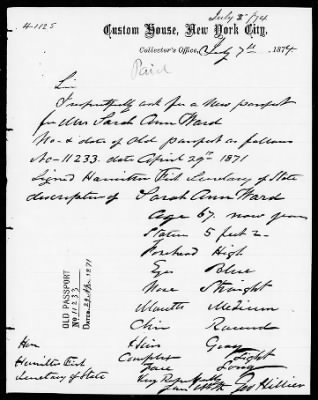 H-1125
July 8/74
Custom House, New York City,
Collector's Office, July 7th 1874
Paid
Sir
I respectfully ask for a New passport
for Mrs Sarah Ann Ward
No- & date of Old passport as follows
No-11233. date April 29th 1871
Signed Hamilton Fish Secretary of State
description of Sarah Ann Ward
Age 67. now years
Stature 5 feet 2-
Forehead High
Eyes Blue
Nose Straight
Mouth Medium
Chin Round
Hair Gray
Complex Light
Face Long
OLD PASSPORT
No 11233
Dated 29 Ap. 1871
Hon
Hamilton Fish
Secretary of State
Very Respectfully
Geo Hillier